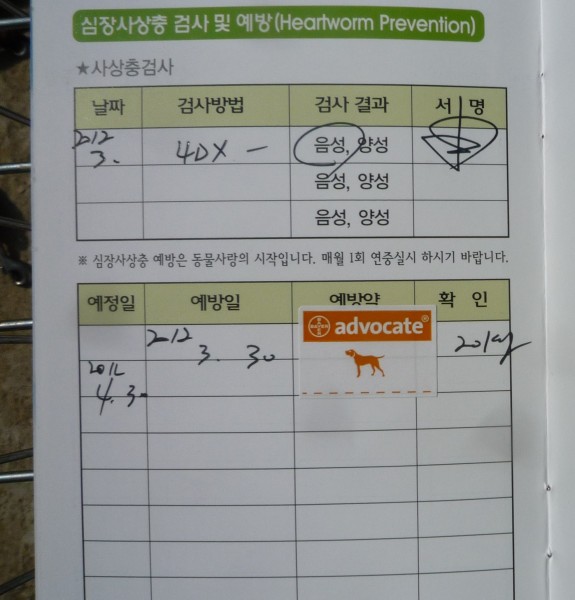 심장사상충 검사 및 예방(Heartworm Prevention)
★사상충검사
날짜 검사방법 검사 결과 서 명
2012 3. 4DX - 음성, 양성
음성, 양성
음성, 양성
※ 심장사상충 예방은 동물사랑의 시작입니다. 매월 1회 연중실시 하시기 바랍니다.
예정일 예방일 예방약 확 인
2012 3. 30 BAYER advocate®
2012 4. 30